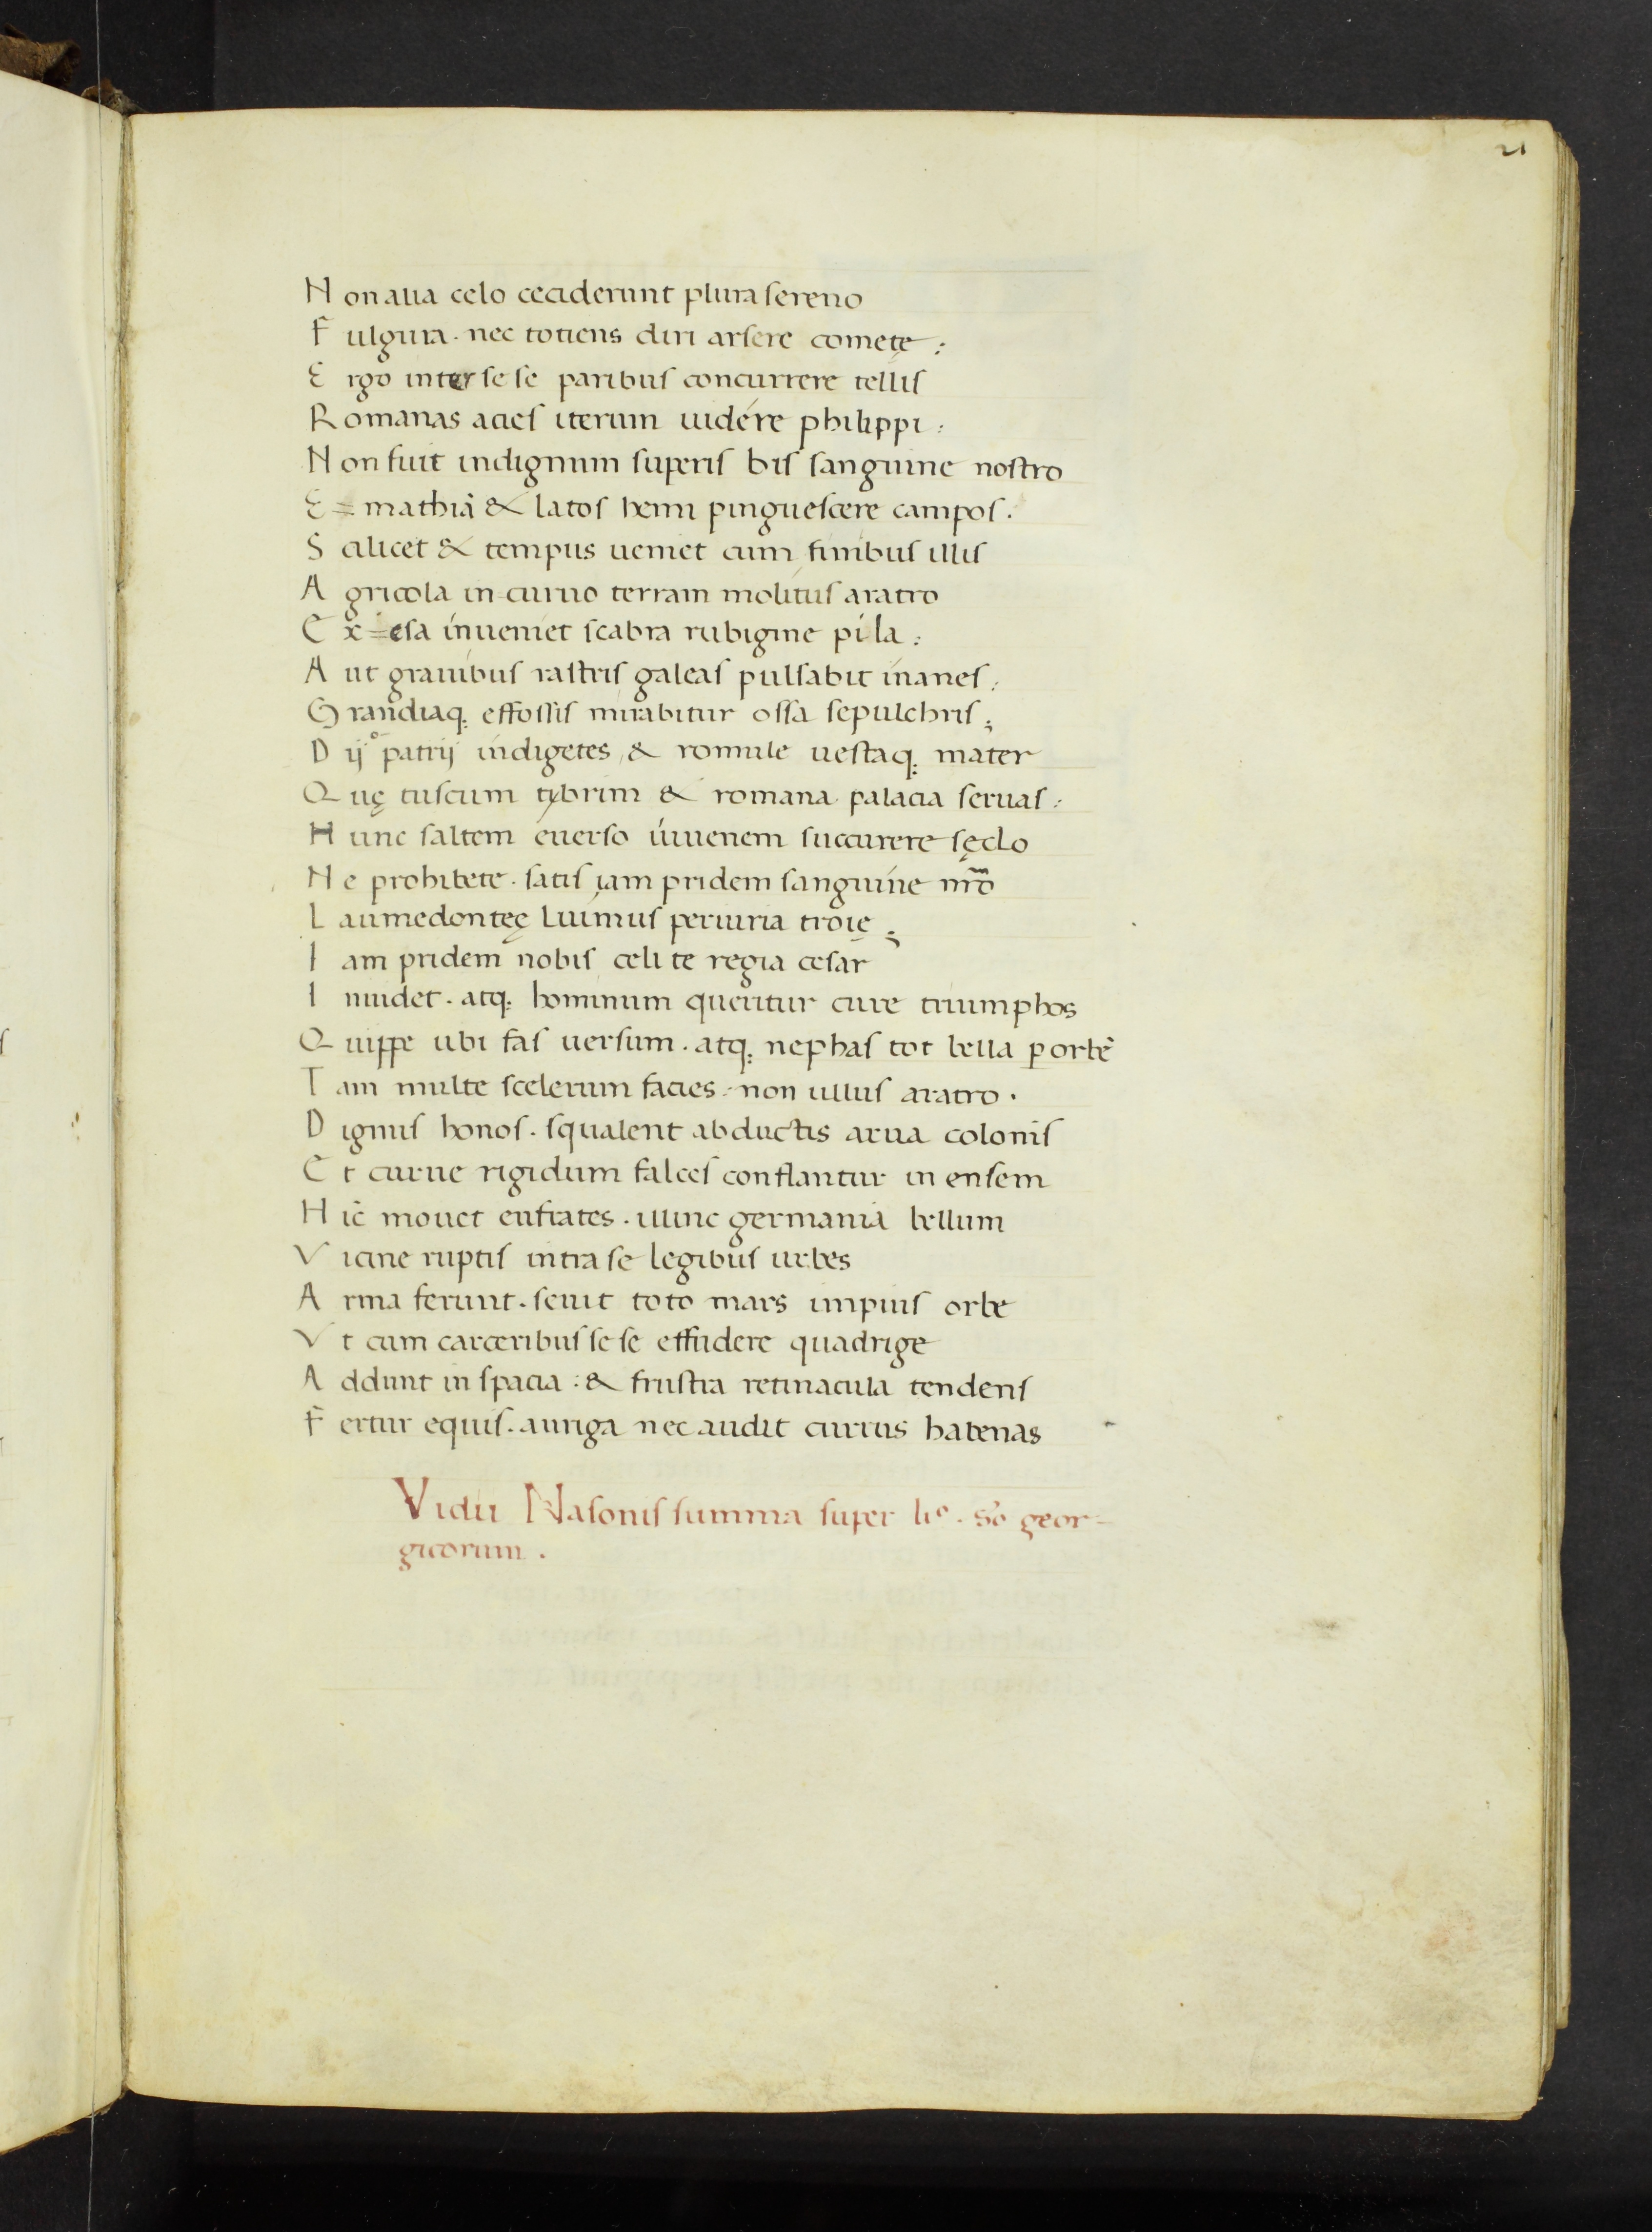 21
Non alia celo ceciderunt plura sereno
Fulgura. nec totiens diri arsere cometę:
Ergo inter sese paribus concurrere tellis
Romanas acies iterum uidére philippi:
Non fuit indignum superis bis sanguine nostro
E=mathiã & latos hemi pinguescere campos.
Scilicet & tempus ueniet cum finibus illis
Agricola in-curuo terram molitus aratro
Ex=esa inueniet scabra rubigine pila:
Aut grauibus rastris galeas pulsabit inanes:
Grandiaq; effossis mirabitur ossa sepulchris;
Dij patrij indigetes, & romule uestaq; mater
Quę tuscum tybrim & romana palacia seruas:
Hunc saltem euerso iuuenem succurere sęclo
Ne prohibete. satis iam pridem sanguine nr̃o
Laumedonteę luimus periuria troię;
Iam pridem nobis celi te regia cesar
Inuidet. atq; hominum queritur cure triumphos
Quippe ubi fas uersum. atq; nephas tot bella p orbẽ
Tam multe scelerum facies. non ullus aratro.
Dignus honos. squalent abductis arua colonis
Et curue rigidum falces conflantur in ensem
Hic mouet eufrates. illinc germania bellum
Vicine ruptis intra se legibus urbes
Arma ferunt. seuit toto mars impius orbe
Vt cum carceribus sese effudere quadrige
Addunt in spacia: & frustra retinacula tendens
Fertur equis. auriga nec audit currus habenas
Vidii Nasonis summa super liº. sº geor-
gicorum.